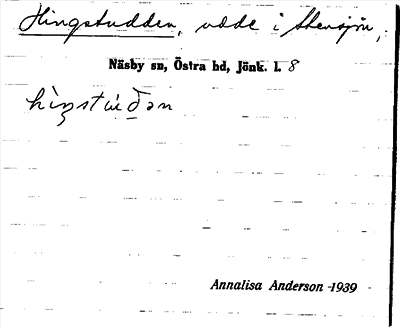 Hingstudden, udde i Stensjön,
Näsby sn, Östra hd, Jönk. l. 8
Annalisa Anderson 1939